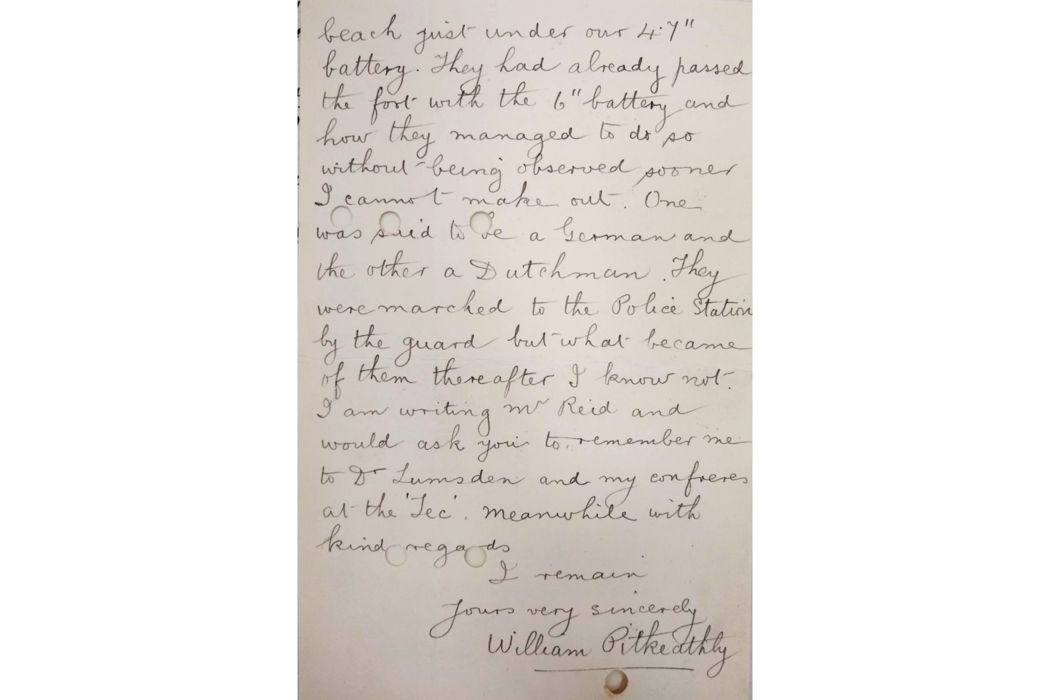 beach just under our 4.7"
battery. They had already passed
the fort with the 6" battery and
how they managed to do so
without being observed sooner
I cannot make out. One
was said to be a German and
the other a Dutchman. They
were marched to the Police Station
by the guard but what became
of them thereafter I know not.
I am writing Mr Reid and
would ask you to remember me
to Dr Lumsden and my confreres
at the 'Tec'. Meanwhile with
kind regards
I remain
Yours very sincerely
William Pitkeathly